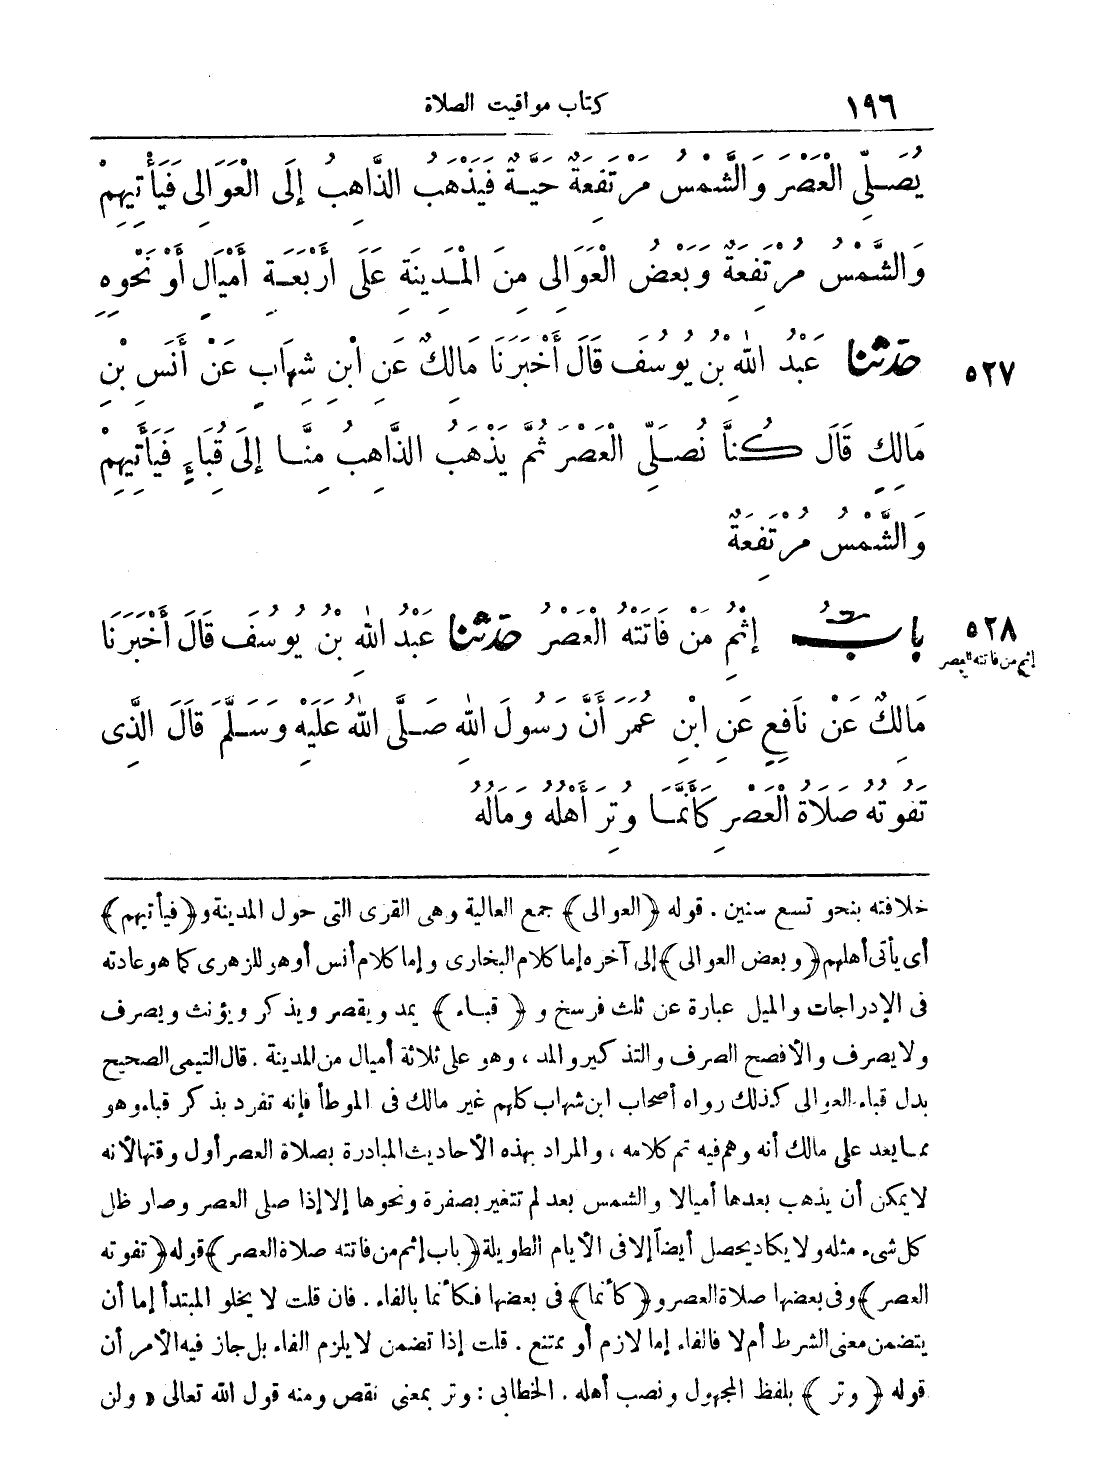 ١٩٦ كتاب مواقيت الصلاة
يُصَلِّي الْعَصْرَ وَالشَّمْسُ مُرْتَفِعَةٌ حَيَّةٌ فَيَذْهَبُ الذَّاهِبُ إِلَى الْعَوَالِى فَيَأْتِيهِمْ
وَالشَّمْسُ مُرْتَفِعَةٌ وَبَعْضُ الْعَوَالِى مِنَ الْمَدِينَةِ عَلَى أَرْبَعَةِ أَمْيَالٍ أَوْ نَحْوِهِ
٥٢٧ حَدَّثَنَا عَبْدُ اللهِ بْنُ يُوسُفَ قَالَ أَخْبَرَنَا مَالِكٌ عَنِ ابْنِ شِهَابٍ عَنْ أَنَسِ بْنِ
مَالِكٍ قَالَ كُنَّا نُصَلِّى الْعَصْرَ ثُمَّ يَذْهَبُ الذَّاهِبُ مِنَّا إِلَى قُبَاءٍ فَيَأْتِيهِمْ
وَالشَّمْسُ مُرْتَفِعَةٌ
٥٢٨ بابُ إِثْمِ مَنْ فَاتَتْهُ الْعَصْرُ حَدَّثَنَا عَبْدُ اللهِ بْنُ يُوسُفَ قَالَ أَخْبَرَنَا
إثم من فاتته العصر
مَالِكٌ عَنْ نَافِعٍ عَنِ ابْنِ عُمَرَ أَنَّ رَسُولَ اللهِ صَلَّى اللهُ عَلَيْهِ وَسَلَّمَ قَالَ الَّذِى
تَفُوتُهُ صَلَاةُ الْعَصْرِ كَأَنَّمَا وُتِرَ أَهْلُهُ وَمَالُهُ
خلافته بنحو تسع سنين . قوله ﴿العوالى﴾ جمع العالية وهى القرى التى حول المدينة و﴿فيأتيهم﴾
أى يأتى أهلهم ﴿وبعض العوالى﴾ إلى آخره إما كلام البخارى وإما كلام أنس أو هو للزهرى كما هو عادته
فى الإدراجات والميل عبارة عن ثلث فرسخ و ﴿قباء﴾ يمد ويقصر ويذكر ويؤنث ويصرف
ولا يصرف والأفصح الصرف والتذكير والمد ، وهو على ثلاثة أميال من المدينة . قال التيمى الصحيح
بدل قباء العوالى كذلك رواه أصحاب ابن شهاب كلهم غير مالك فى الموطأ فإنه تفرد بذكر قباء وهو
مما يعد على مالك أنه وهم فيه تم كلامه ، والمراد بهذه الأحاديث المبادرة بصلاة العصر أول وقتها لأنه
لا يمكن أن يذهب بعدها أميالا والشمس بعد لم تتغير بصفرة ونحوها إلا إذا صلى العصر وصار ظل
كل شىء مثله ولا يكاد يحصل أيضاً إلا فى الأيام الطويلة ﴿باب إثم من فاتته صلاة العصر﴾ قوله ﴿تفوته
العصر﴾ وفى بعضها صلاة العصر و﴿كأنما﴾ فى بعضها فكأنما بالفاء . فان قلت لا يخلو المبتدأ إما أن
يتضمن معنى الشرط أم لا فالفاء إما لازم أو ممتنع . قلت إذا تضمن لا يلزم الفاء بل جاز فيه الأمر أن
قوله ﴿وتر﴾ بلفظ المجهول ونصب أهله . الخطابى : وتر بمعنى نقص ومنه قول الله تعالى « ولن